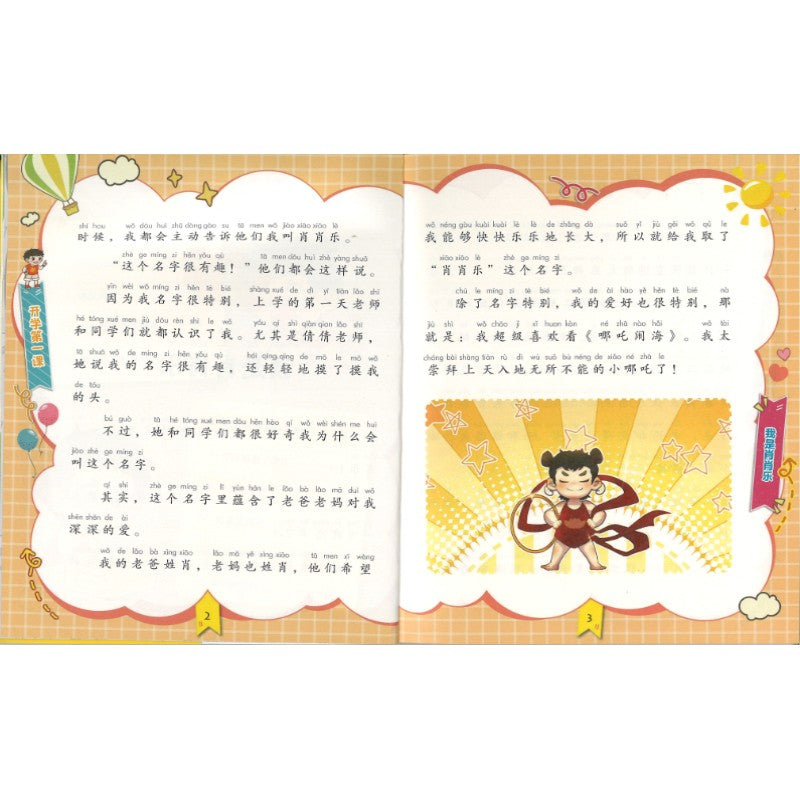 开学第一课
shí hou wǒ dōu huì zhǔ dòng gào su tā men wǒ jiào xiāo xiāo lè
时候，我都会主动告诉他们我叫肖肖乐。
zhè ge míng zi hěn yǒu qù tā men dōu huì zhè yàng shuō
“这个名字很有趣！”他们都会这样说。
yīn wèi wǒ míng zi hěn tè bié shàng xué de dì yī tiān lǎo shī
因为我名字很特别，上学的第一天老师
hé tóng xué men jiù dōu rèn shi le wǒ yóu qí shì qiàn qiàn lǎo shī
和同学们就都认识了我。尤其是倩倩老师，
tā shuō wǒ de míng zi hěn yǒu qù hái qīng qīng de mō le mō wǒ
她说我的名字很有趣，还轻轻地摸了摸我
de tóu
的头。
bú guò tā hé tóng xué men dōu hěn hào qí wǒ wèi shén me huì
不过，她和同学们都很好奇我为什么会
jiào zhè ge míng zi
叫这个名字。
qí shí zhè ge míng zi lǐ yùn hán le lǎo bà lǎo mā duì wǒ
其实，这个名字里蕴含了老爸老妈对我
shēn shēn de ài
深深的爱。
wǒ de lǎo bà xìng xiāo lǎo mā yě xìng xiāo tā men xī wàng
我的老爸姓肖，老妈也姓肖，他们希望
2
wǒ néng gòu kuài kuài lè lè de zhǎng dà suǒ yǐ jiù gěi wǒ qǔ le
我能够快快乐乐地长大，所以就给我取了
xiāo xiāo lè zhè ge míng zi
“肖肖乐”这个名字。
chú le míng zi tè bié wǒ de ài hào yě hěn tè bié nà
除了名字特别，我的爱好也很特别，那
jiù shì wǒ chāo jí xǐ huan kàn né zhā nào hǎi wǒ tài
就是：我超级喜欢看《哪吒闹海》。我太
chóng bài shàng tiān rù dì wú suǒ bù néng de xiǎo né zhā le
崇拜上天入地无所不能的小哪吒了！
我是肖肖乐
3